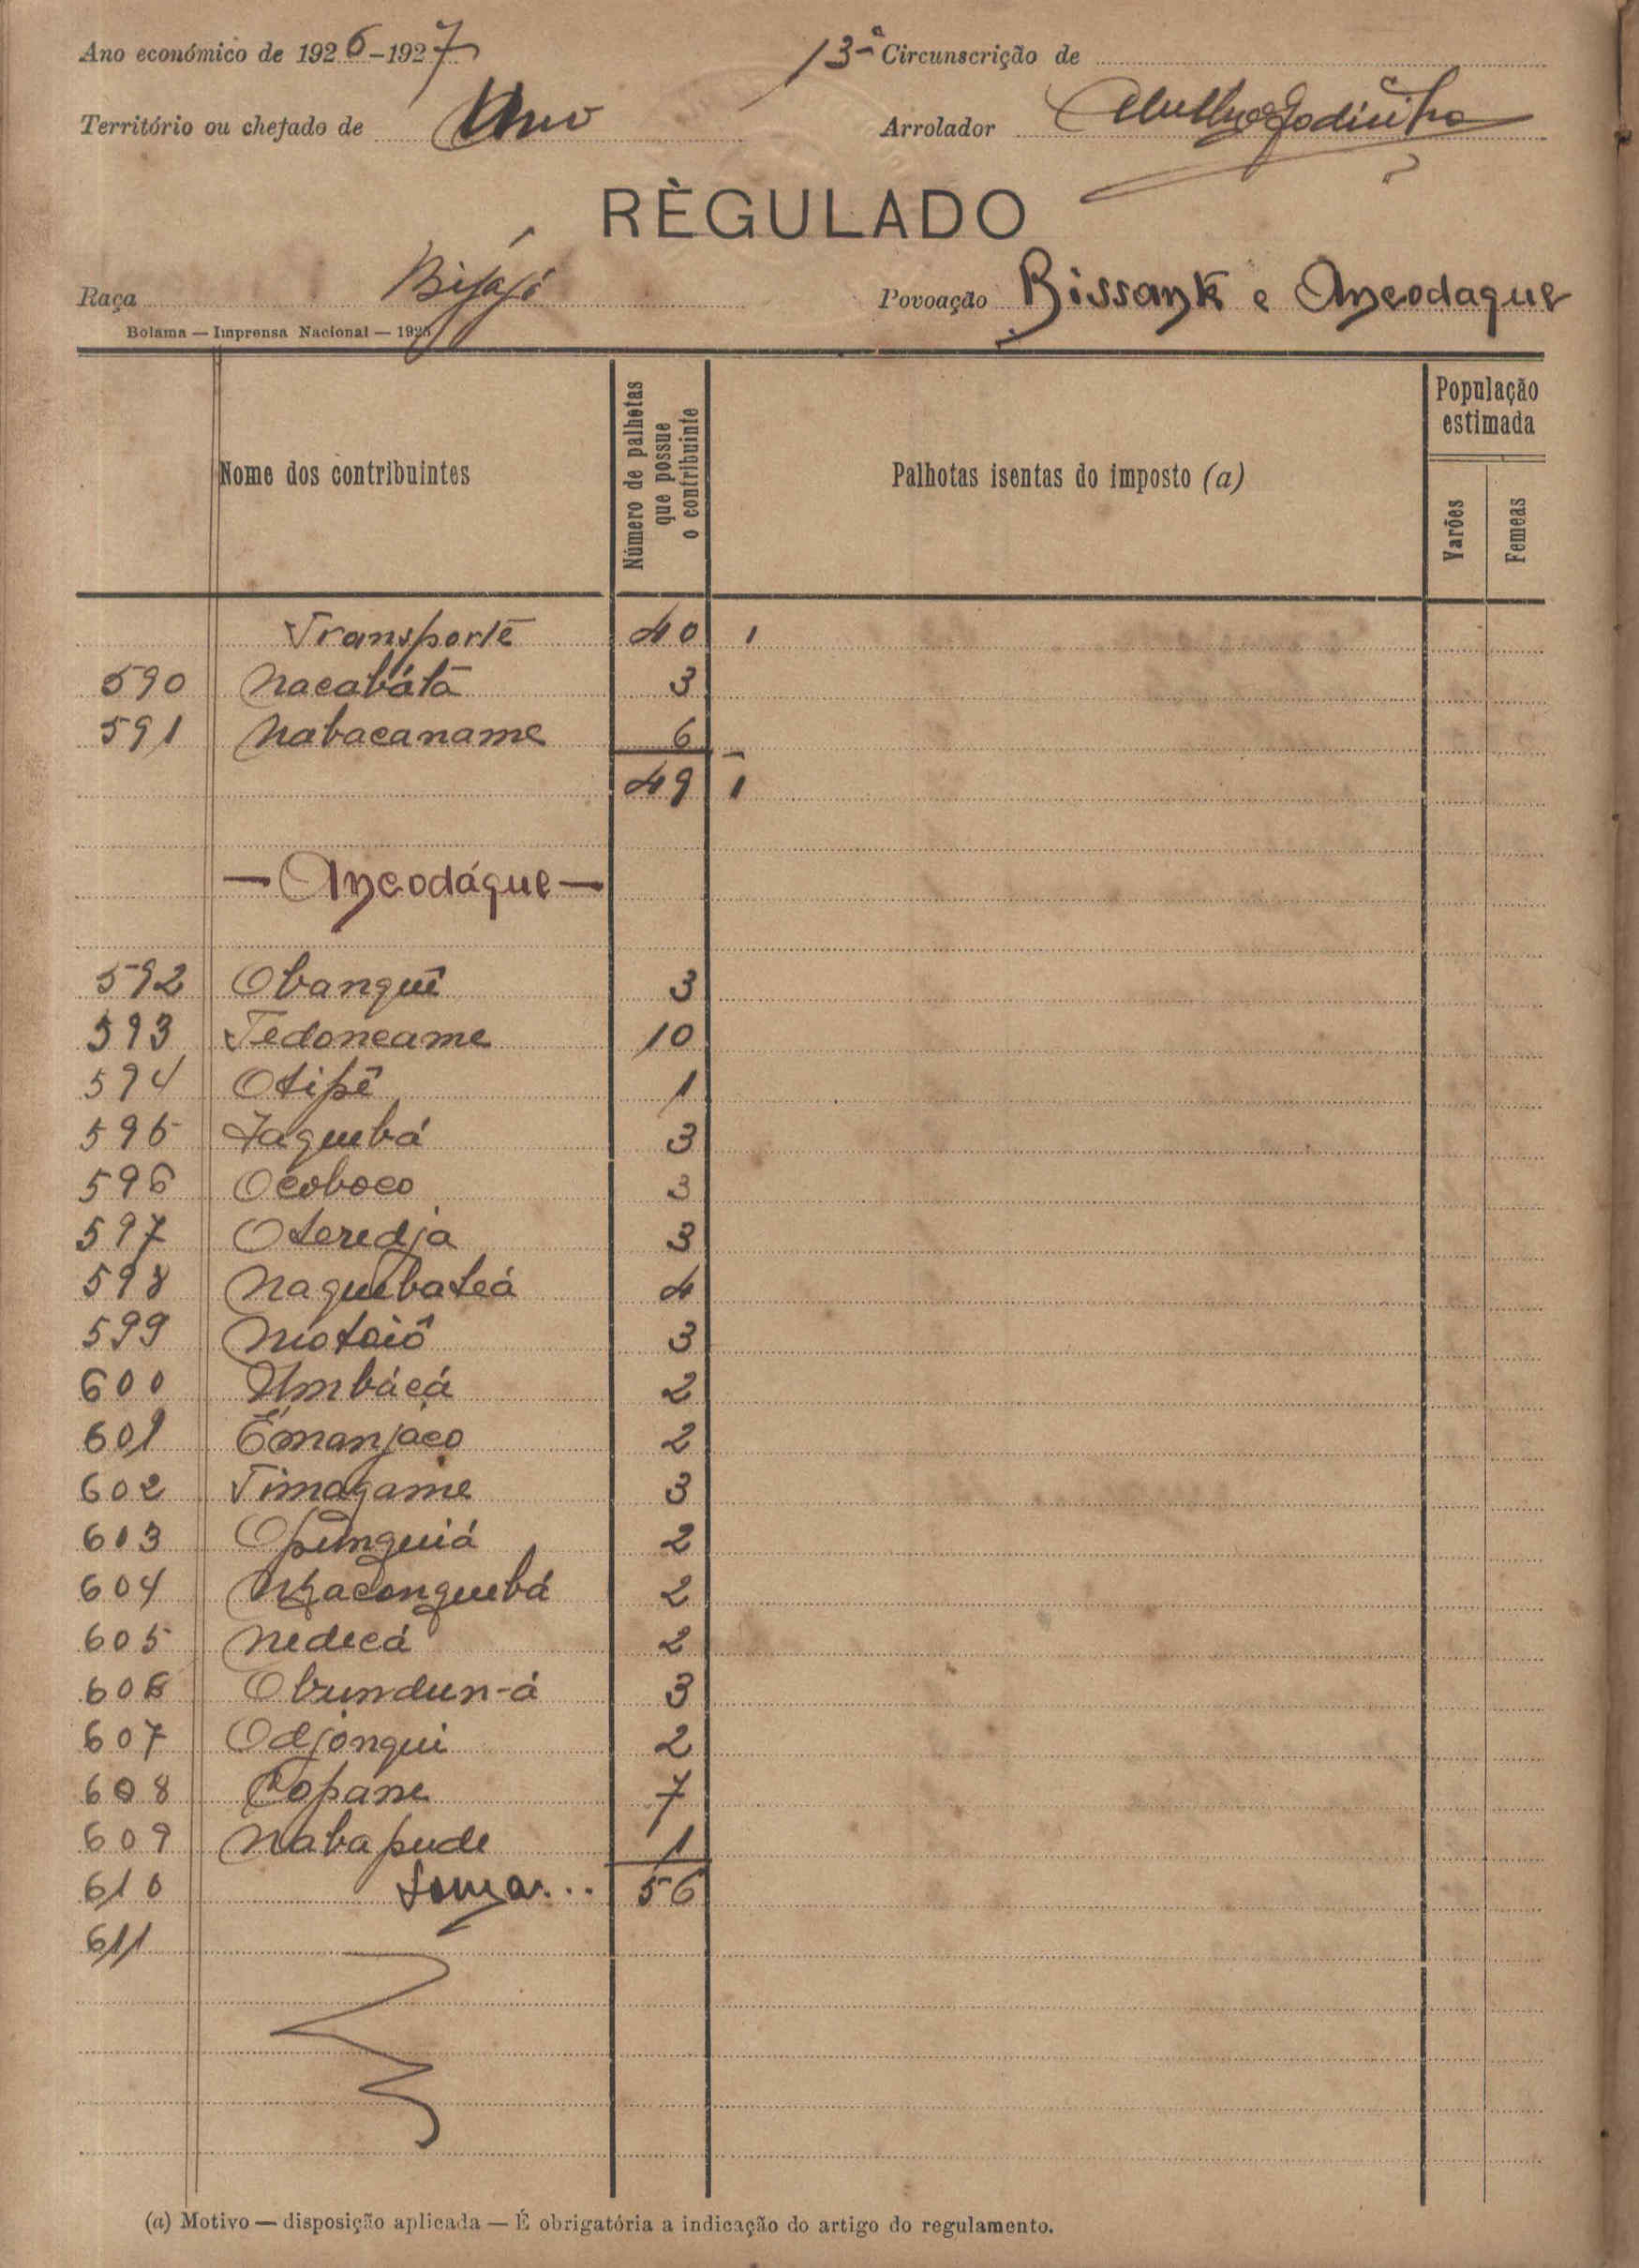 Ano económico de 1926-1927 13ª Circunscrição de
Território ou chefado de Uno Arrolador Godinho
RÈGULADO
Raça Bijagó Povoação Bissank e Ancodaque
Bolama — Imprensa Nacional — 1925
Nome dos contribuintes
Número de palhotas que possue o contribuinte
Palhotas isentas do imposto (a)
População estimada
Varões
Femeas
Transporte 40 1
590 Nacabátà 3
591 Nabacaname 6
49 1
— Ancodáque —
592 Obanquê 3
593 Tedoncame 10
594 Otipê 1
595 Jaguebá 3
596 Ocoboco 3
597 Oteredja 3
598 Naguebateá 4
599 Motoiô 3
600 Umbácá 2
601 Emanjaco 2
602 Timagame 3
603 Opunguiá 2
604 Nhaconguebá 2
605 Nedecá 2
606 Obundun-á 3
607 Odjongui 2
608 Copane 7
609 Nabapude 1
610 Soma... 56
611
(a) Motivo — disposição aplicada — É obrigatória a indicação do artigo do regulamento.